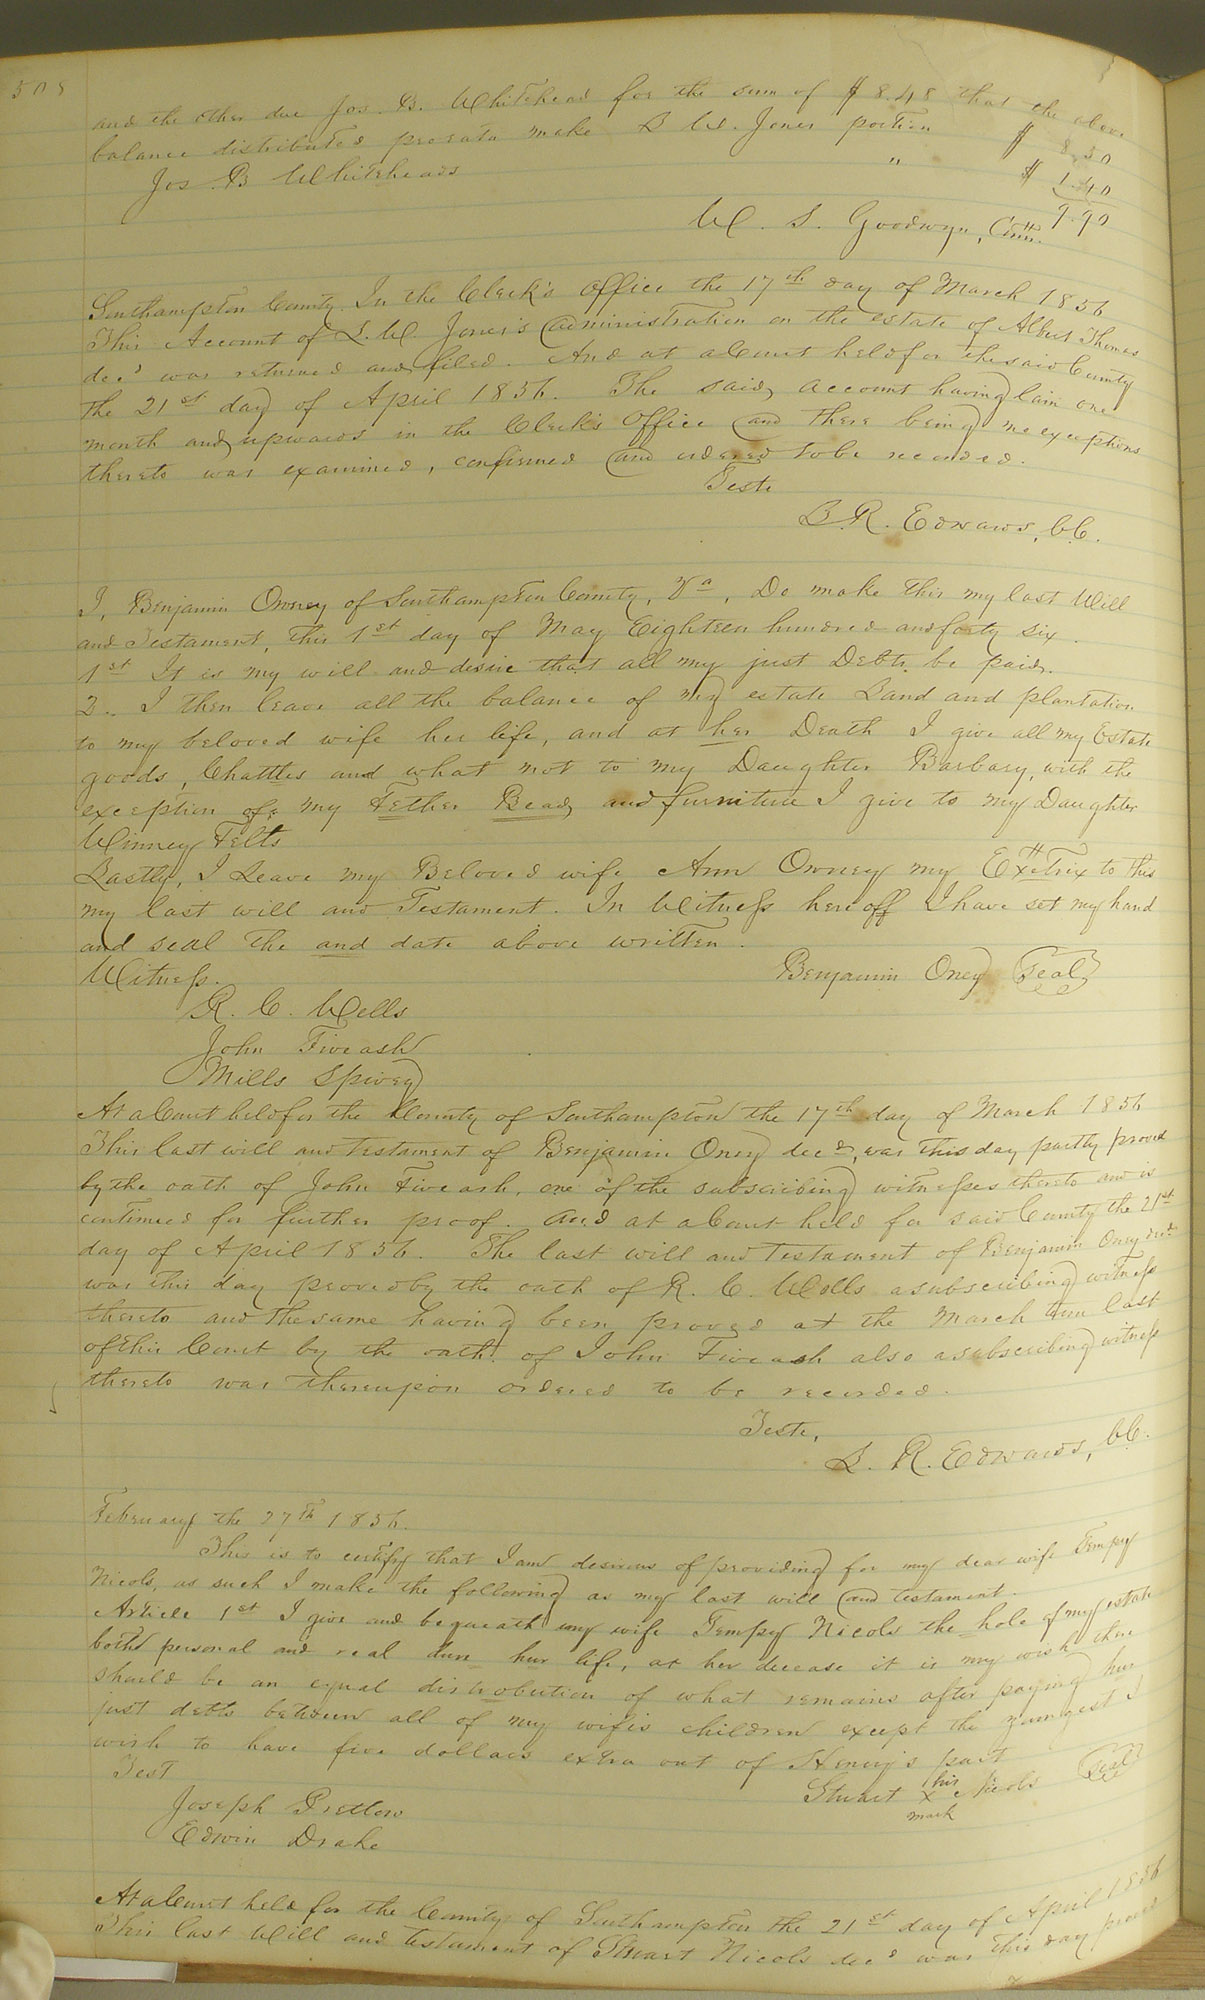 508
and the other due Jos. B. Whitehead for the sum of $ 8.48 that the above
balance distributed prorata make L W. Jones portion $ 8.50
Jos. B Whiteheads " $ 1.40
9.90
W. S. Goodwyn, Comr.
Southampton County In the Clerk's office the 17th day of March 1856
This Account of L. W. Jones's administration on the estate of Albert Thomas
decd was returned and filed. And at a Court held for the said County
the 21st day of April 1856. The said account having lain one
month and upwards in the Clerk's office and there being no exceptions
thereto was examined, confirmed and ordered to be recorded.
Teste
L. R. Edwards, CC.
I, Benjamin Owney of Southampton County, Va, Do make this my last Will
and Testament, this 1st day of May Eighteen hundred and forty six.
1st It is my will and desire that all my just Debts be paid.
2.. I then leave all the balance of my estate Land and plantation
to my beloved wife her life, and at her Death I give all my Estate
goods, Chattles and what not to my Daughter Barbary, with the
exception off my Fether Bead and furniture I give to my Daughter
Winney Felts
Lastly, I Leave my Beloved wife Ann Owney my Exetrix to this
my last will and Testament. In Witness here off I have set my hand
and seal the and date above written.
Witness. Benjamin Oney Seal
R. C. Wells
John Fiveash
Mills Spivey
At a Court held for the County of Southampton the 17th day of March 1856
This last will and testament of Benjamin Oney decd, was this day partly proved
by the oath of John Fiveash, one of the subscribing witnesses thereto and is
continued for further proof. And at a Court held for said County the 21st
day of April 1856. The last will and testament of Benjamin Oney decd
was this day proved by the oath of R. C. Wells a subscribing witness
thereto and the same having been proved at the March term last
of this Court by the oath of John Fiveash also a subscribing witness
thereto was thereupon ordered to be recorded.
Teste,
L. R. Edwards, CC.
February the 27th 1856.
This is to certify that I am desirous of providing for my dear wife Tempy
Nicols, as such I make the following as my last will and testament.
Article 1st I give and bequeath my wife Tempy Nicols the hole of my estate
both personal and real dure hur life, at her decease it is my wish there
should be an equal distrobution of what remains after paying hur
just debts between all of my wifis children except the youngest I
wish to have five dollars extra out of Henry's part
Test Stuart his x mark Nicols Seal
Joseph Pretlow
Edwin Drake
At a Court held for the County of Southampton the 21st day of April 1856
This last Will and testament of Stuart Nicols decd was this day proved